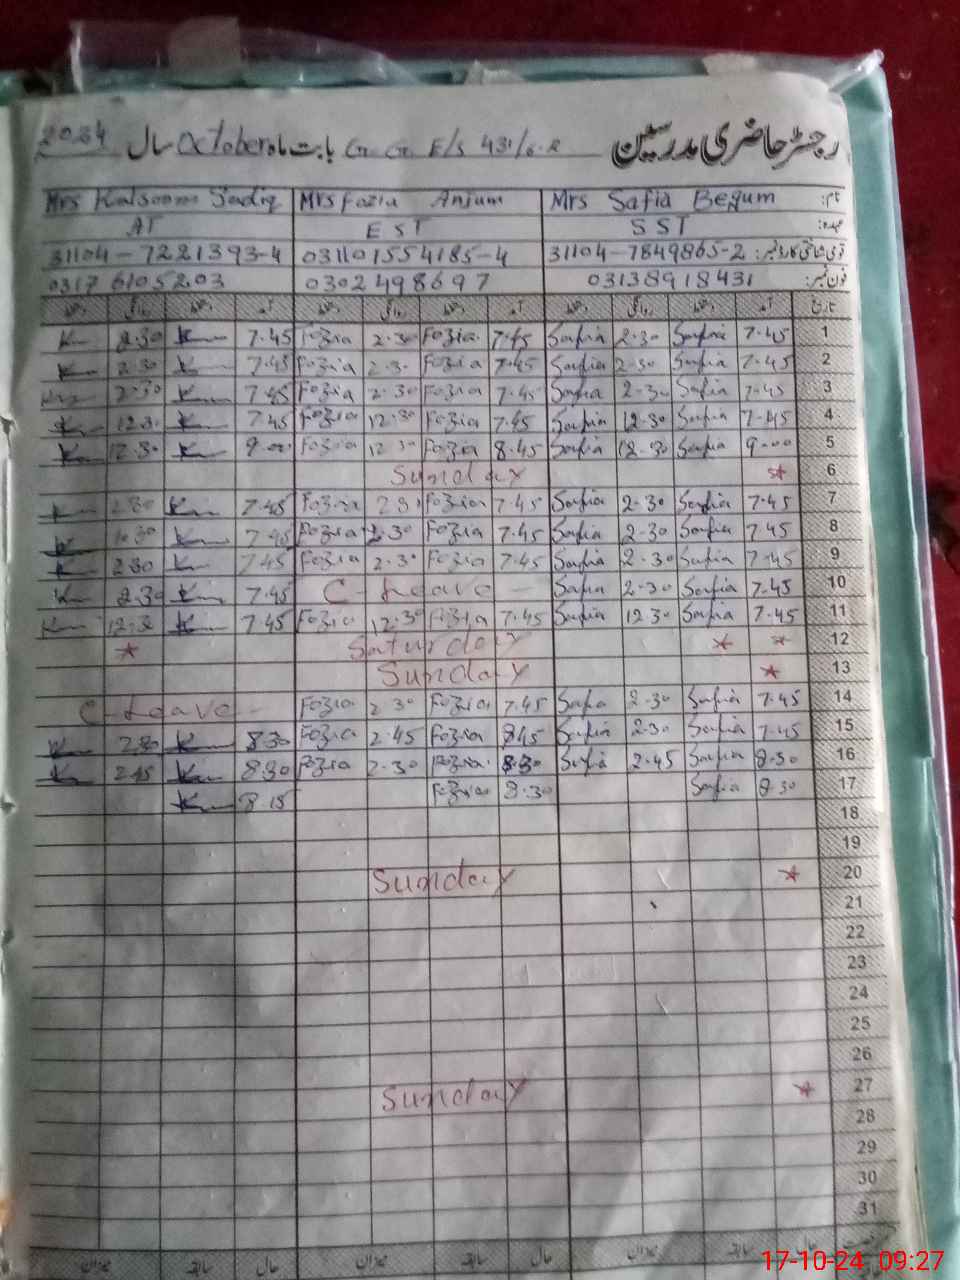 رجسٹر حاضری مدرسین G G E/S 431/6.R بابت ماہ October سال 2024
نام: Mrs Safia Begum Mrs Fozia Anjum Mrs Kalsoom Sadiq
عہدہ: SST EST AT
قومی شناختی کارڈ نمبر: 31104-7849865-2 031101554185-4 31104-7221393-4
فون نمبر: 03138918431 0302498697 03176105203
تاریخ آمد دستخط روانگی دستخط آمد دستخط روانگی دستخط آمد دستخط روانگی دستخط
1 7.45 Safia 2.30 Safia 7.45 Fozia 2.30 Fozia 7.45 K 2.30 K
2 7.45 Safia 2.30 Safia 7.45 Fozia 2.30 Fozia 7.45 K 2.30 K
3 7.45 Safia 2.30 Safia 7.45 Fozia 2.30 Fozia 7.45 K 2.30
4 7.45 Safia 12.30 Safia 7.45 Fozia 12.30 Fozia 7.45 K 12.30 K
5 9.00 Safia 12.30 Safia 8.45 Fozia 12.30 Fozia 9.00 K 12.30 K
6 Sunday
7 7.45 Safia 2.30 Safia 7.45 Fozia 2.30 Fozia 7.45 K 2.30 K
8 7.45 Safia 2.30 Safia 7.45 Fozia 2.30 Fozia 7.45 K K
9 7.45 Safia 2.30 Safia 7.45 Fozia 2.30 Fozia 7.45 K 2.30 K
10 7.45 Safia 2.30 Safia C-Leave 7.45 K 2.30 K
11 7.45 Safia 12.30 Safia 7.45 Fozia 12.30 Fozia 7.45 K 12.30 K
12 Saturday
13 Sunday
14 7.45 Safia 2.30 Safia 7.45 Fozia 2.30 Fozia C-Leave
15 7.45 Safia 2.30 Safia 8.45 Fozia 2.45 Fozia 8.30 K 2.30 K
16 8.30 Safia 2.45 Safia 8.30 Fozia 2.30 Fozia 8.30 K 2.45 K
17 8.30 Safia 8.30 Fozia 8.15 K
18
19
20 Sunday
21
22
23
24
25
26
27 Sunday
28
29
30
31
حال سابقہ میزان حال سابقہ میزان حال سابقہ میزان
17-10-24 09:27